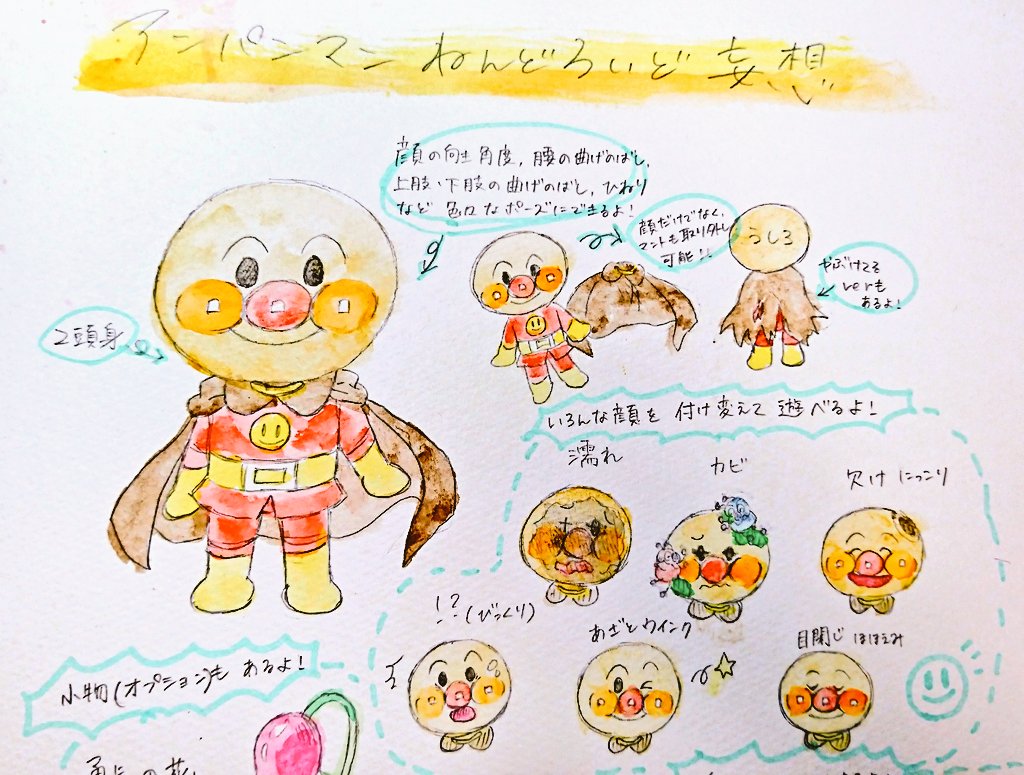 アンパンマン ねんどろいど 妄想
顔の向き角度、腰の曲げのばし、
上肢・下肢の曲げのばし、ひねり
など 色んなポーズにできるよ!
顔だけでなく、
マントも取り外し
可能!!
うしろ
やぶけてる
verも
あるよ!
2頭身
いろんな顔を 付け変えて 遊べるよ!
濡れ
カビ
欠け にっこり
!?(びっくり)
あざとウインク
目閉じ ほほえみ
小物(オプション)も あるよ!